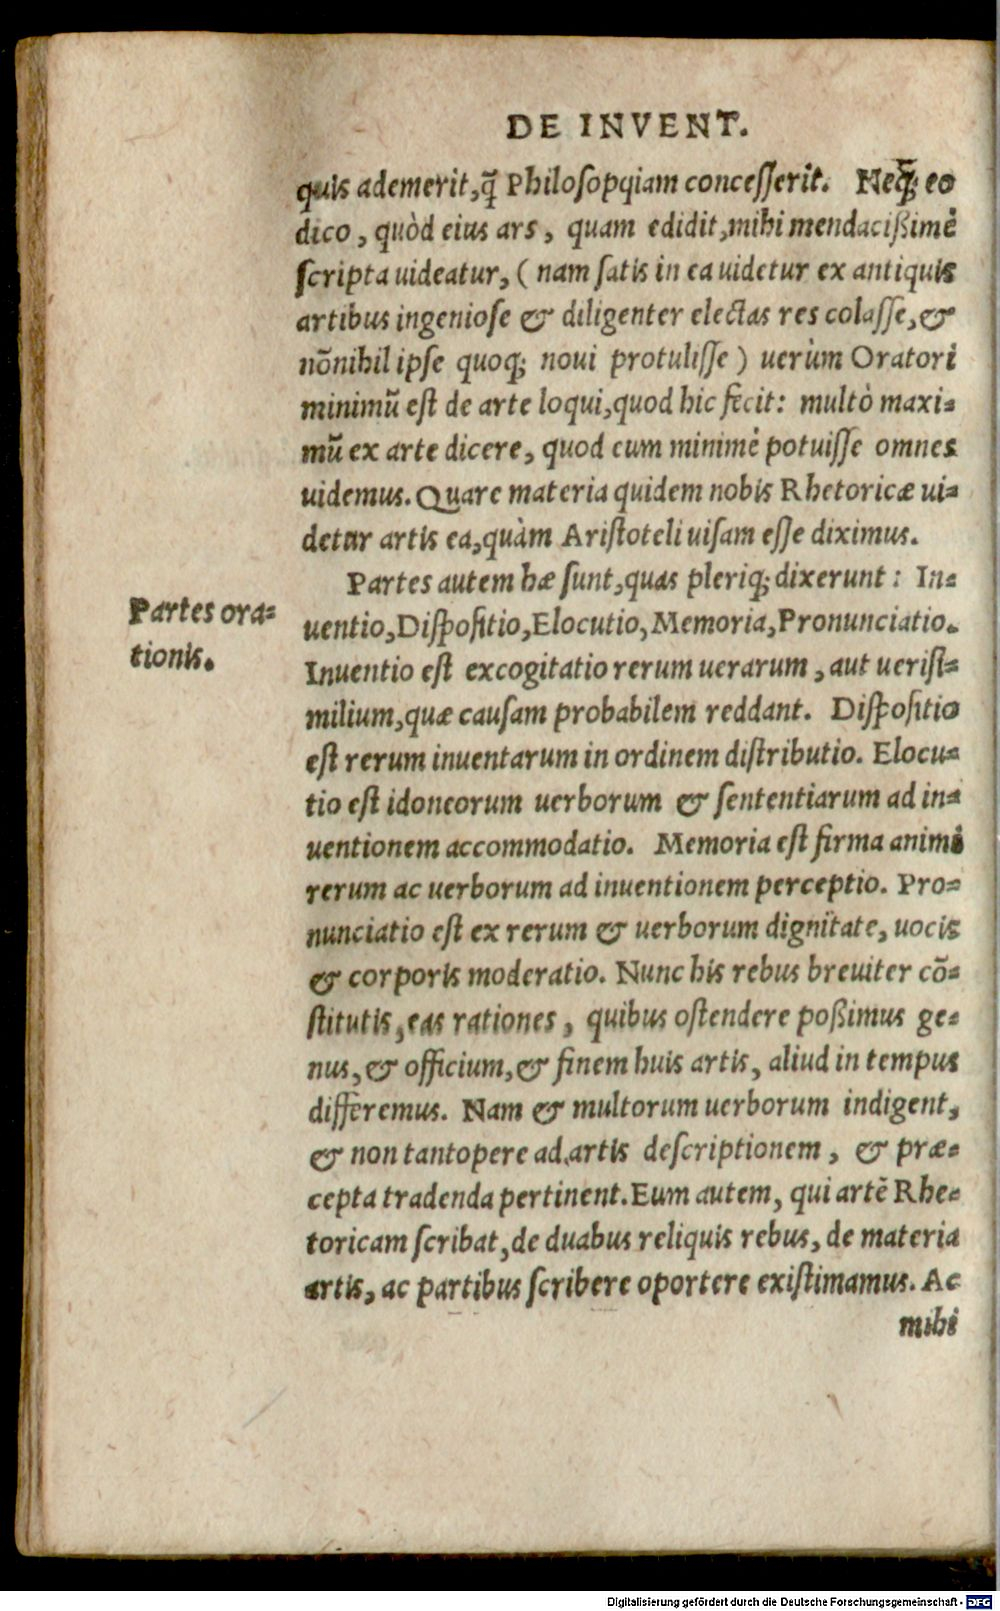 DE INVENT.
quis ademerit, q̄ Philosopqiam concesserit. Neq; eo
dico, quòd eius ars, quam edidit, mihi mendacißimè
scripta uideatur, (nam satis in ea uidetur ex antiquis
artibus ingeniose & diligenter electas res colasse, &
nōnihil ipse quoq; noui protulisse) uerùm Oratori
minimū est de arte loqui, quod hic fecit: multò maxi-
mū ex arte dicere, quod eum minimè potuisse omnes
uidemus. Quare materia quidem nobis Rhetoricæ ui-
detur artis ea, quàm Aristoteli uisam esse diximus.
Partes autem hæ sunt, quas pleriq; dixerunt: In-
uentio, Dispositio, Elocutio, Memoria, Pronunciatio.
Inuentio est excogitatio rerum uerarum, aut uerisi-
milium, quæ causam probabilem reddant. Dispositio
est rerum inuentarum in ordinem distributio. Elocu-
tio est idoneorum uerborum & sententiarum ad in-
uentionem accommodatio. Memoria est firma animi
rerum ac uerborum ad inuentionem perceptio. Pro-
nunciatio est ex rerum & uerborum dignitate, uocis
& corporis moderatio. Nunc his rebus breuiter cō-
stitutis, eas rationes, quibus ostendere poßimus ge-
nus, & officium, & finem huis artis, aliud in tempus
differemus. Nam & multorum uerborum indigent,
& non tantopere ad artis descriptionem, & præ-
cepta tradenda pertinent. Eum autem, qui artē Rhe-
toricam scribat, de duabus reliquis rebus, de materia
artis, ac partibus scribere oportere existimamus. Ac
mihi
Partes ora-
tionis.
Digitalisierung gefördert durch die Deutsche Forschungsgemeinschaft - DFG